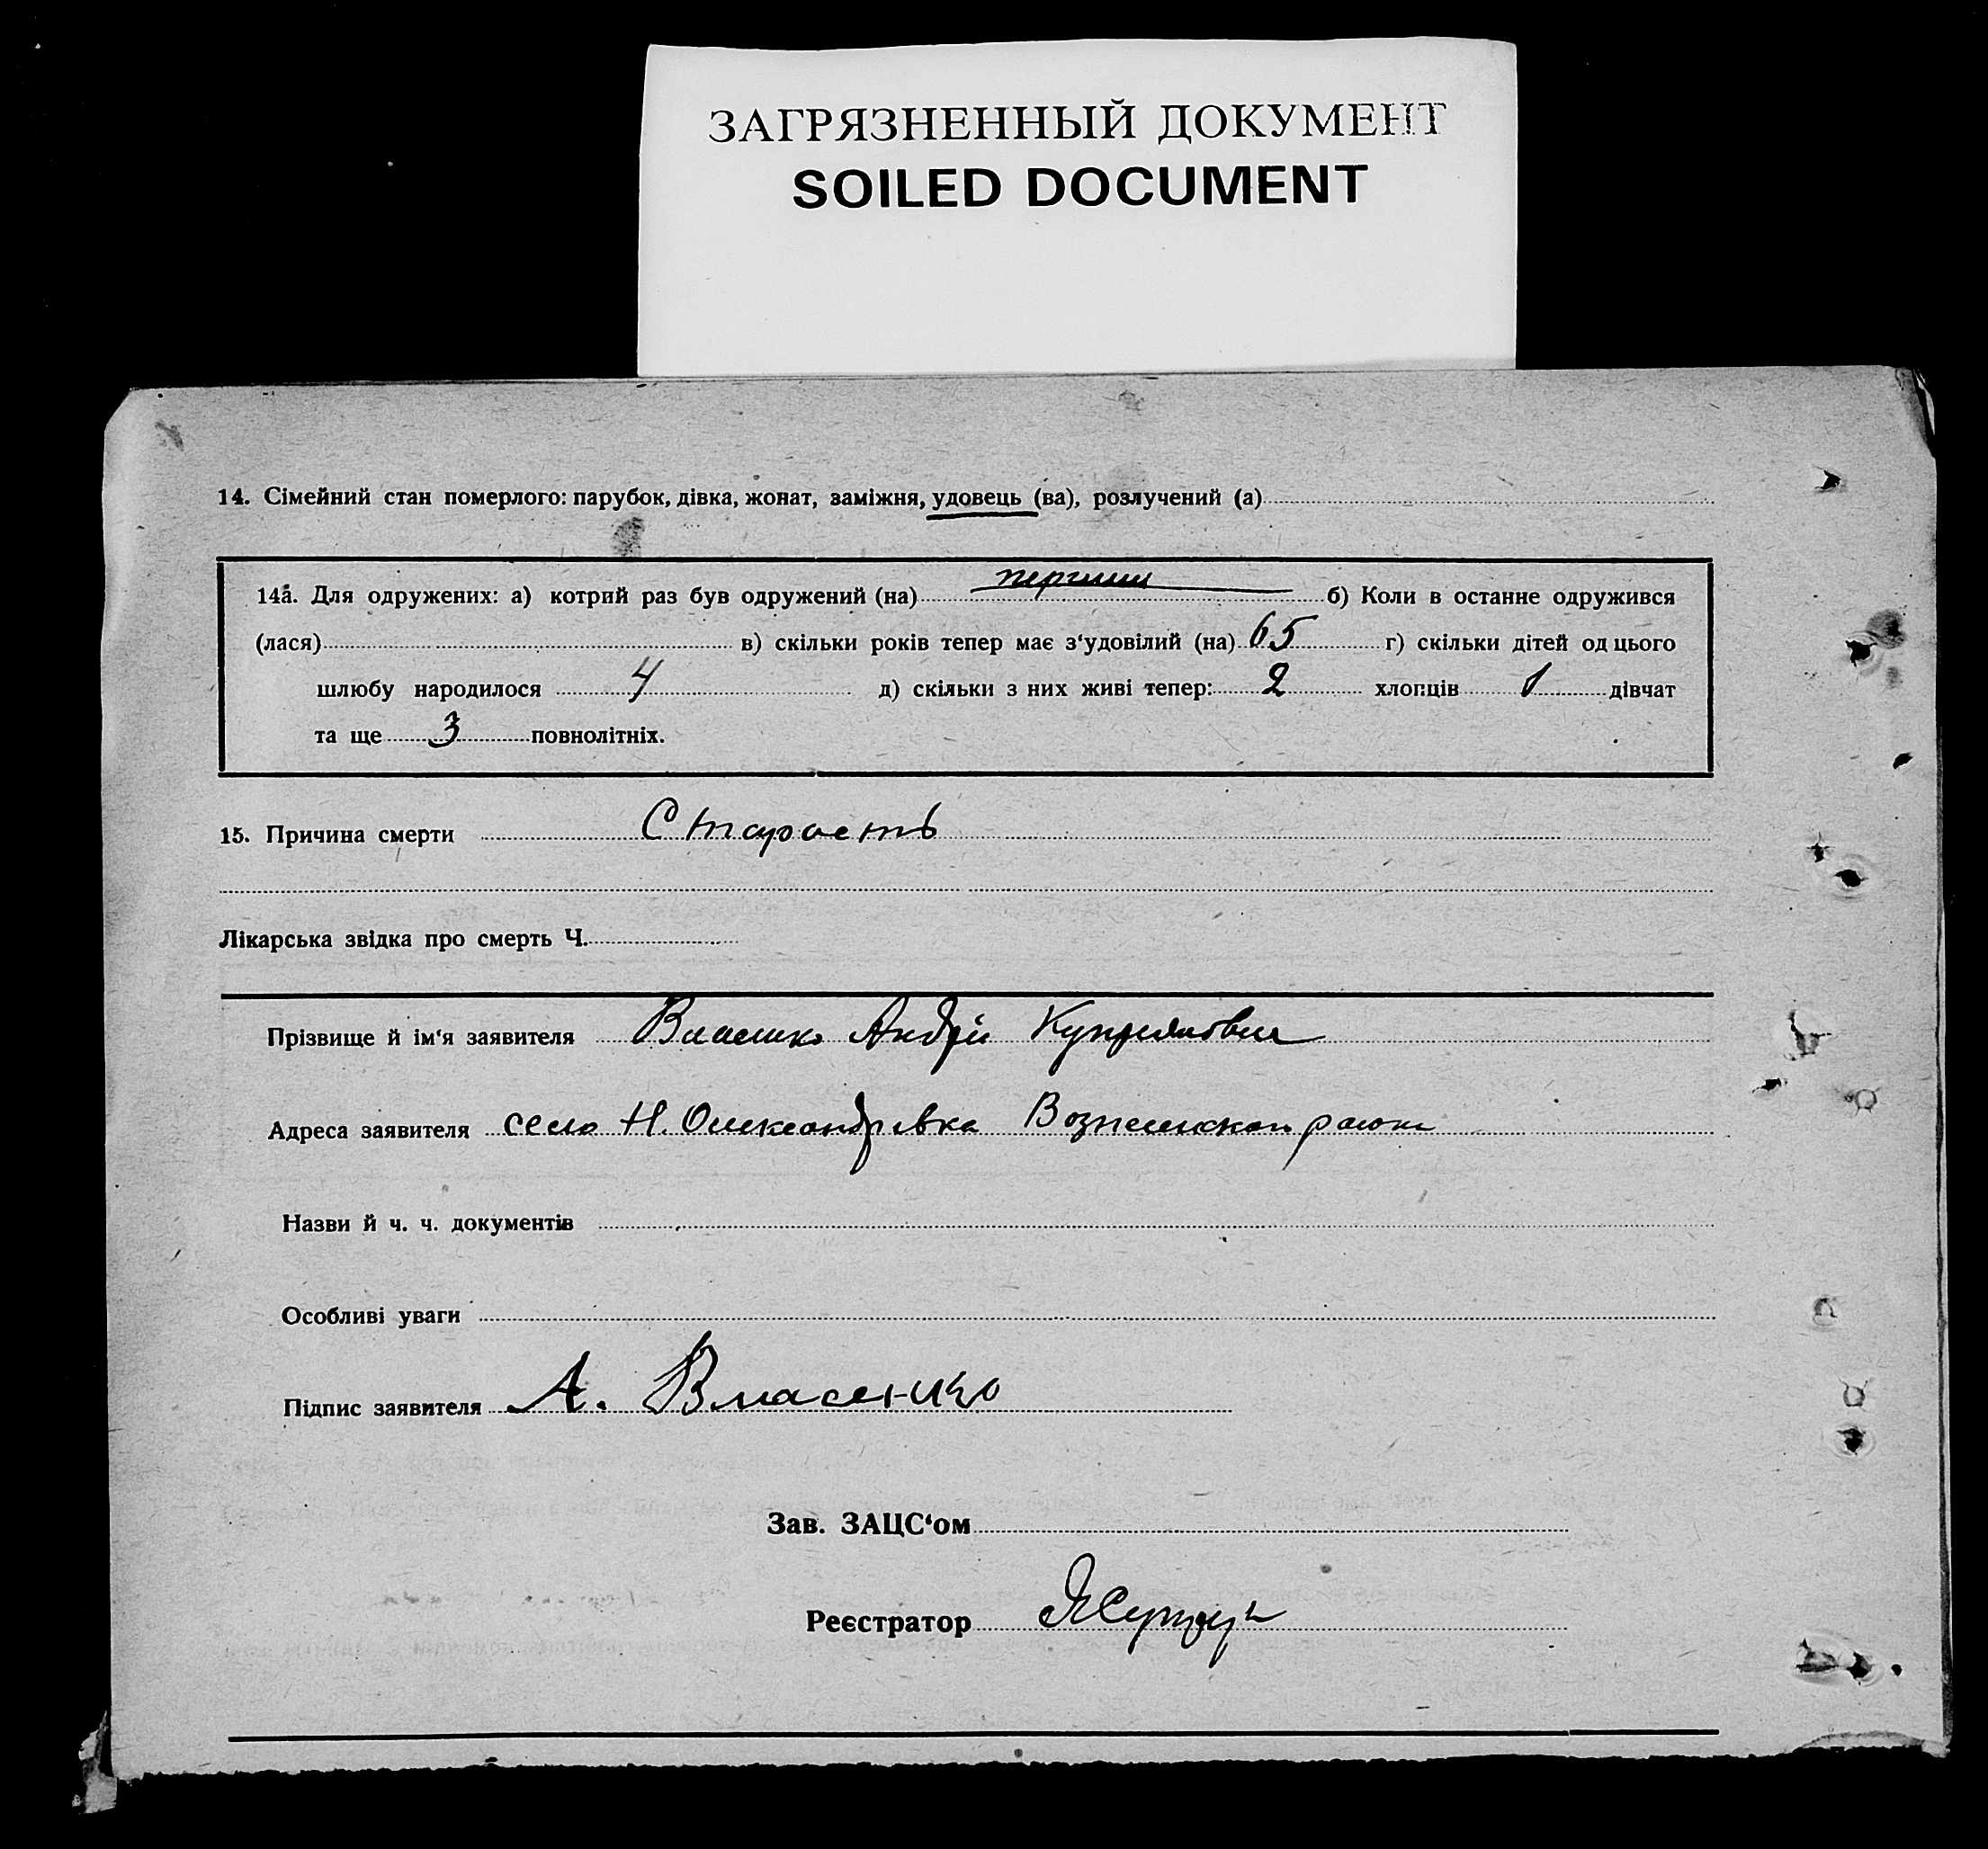 ЗАГРЯЗНЕННЫЙ ДОКУМЕНТ
SOILED DOCUMENT
14. Сімейний стан померлого: парубок, дівка, жонат, заміжня, удовець (ва), розлучений (а)
14а. Для одружених: а) котрий раз був одружений (на) б) Коли в останне одружився
(лася) в) скільки років тепер має з‘удовілий (на) 65 г) скільки дітей од цього
шлюбу народилося 4 д) скільки з них живі тепер: 2 хлопців 1 дівчат
та ще 3 повнолітніх.
15. Причина смерти Старость
Лікарська звідка про смерть Ч.
Прізвище й ім‘я заявителя Власенко Андрій
Адреса заявителя село Н. Олександрівка Вознесенського району
Назви й ч. ч. документів
Особливі уваги
Підпис заявителя А. Власенко
Зав. ЗАЦС‘ом
Реєстратор